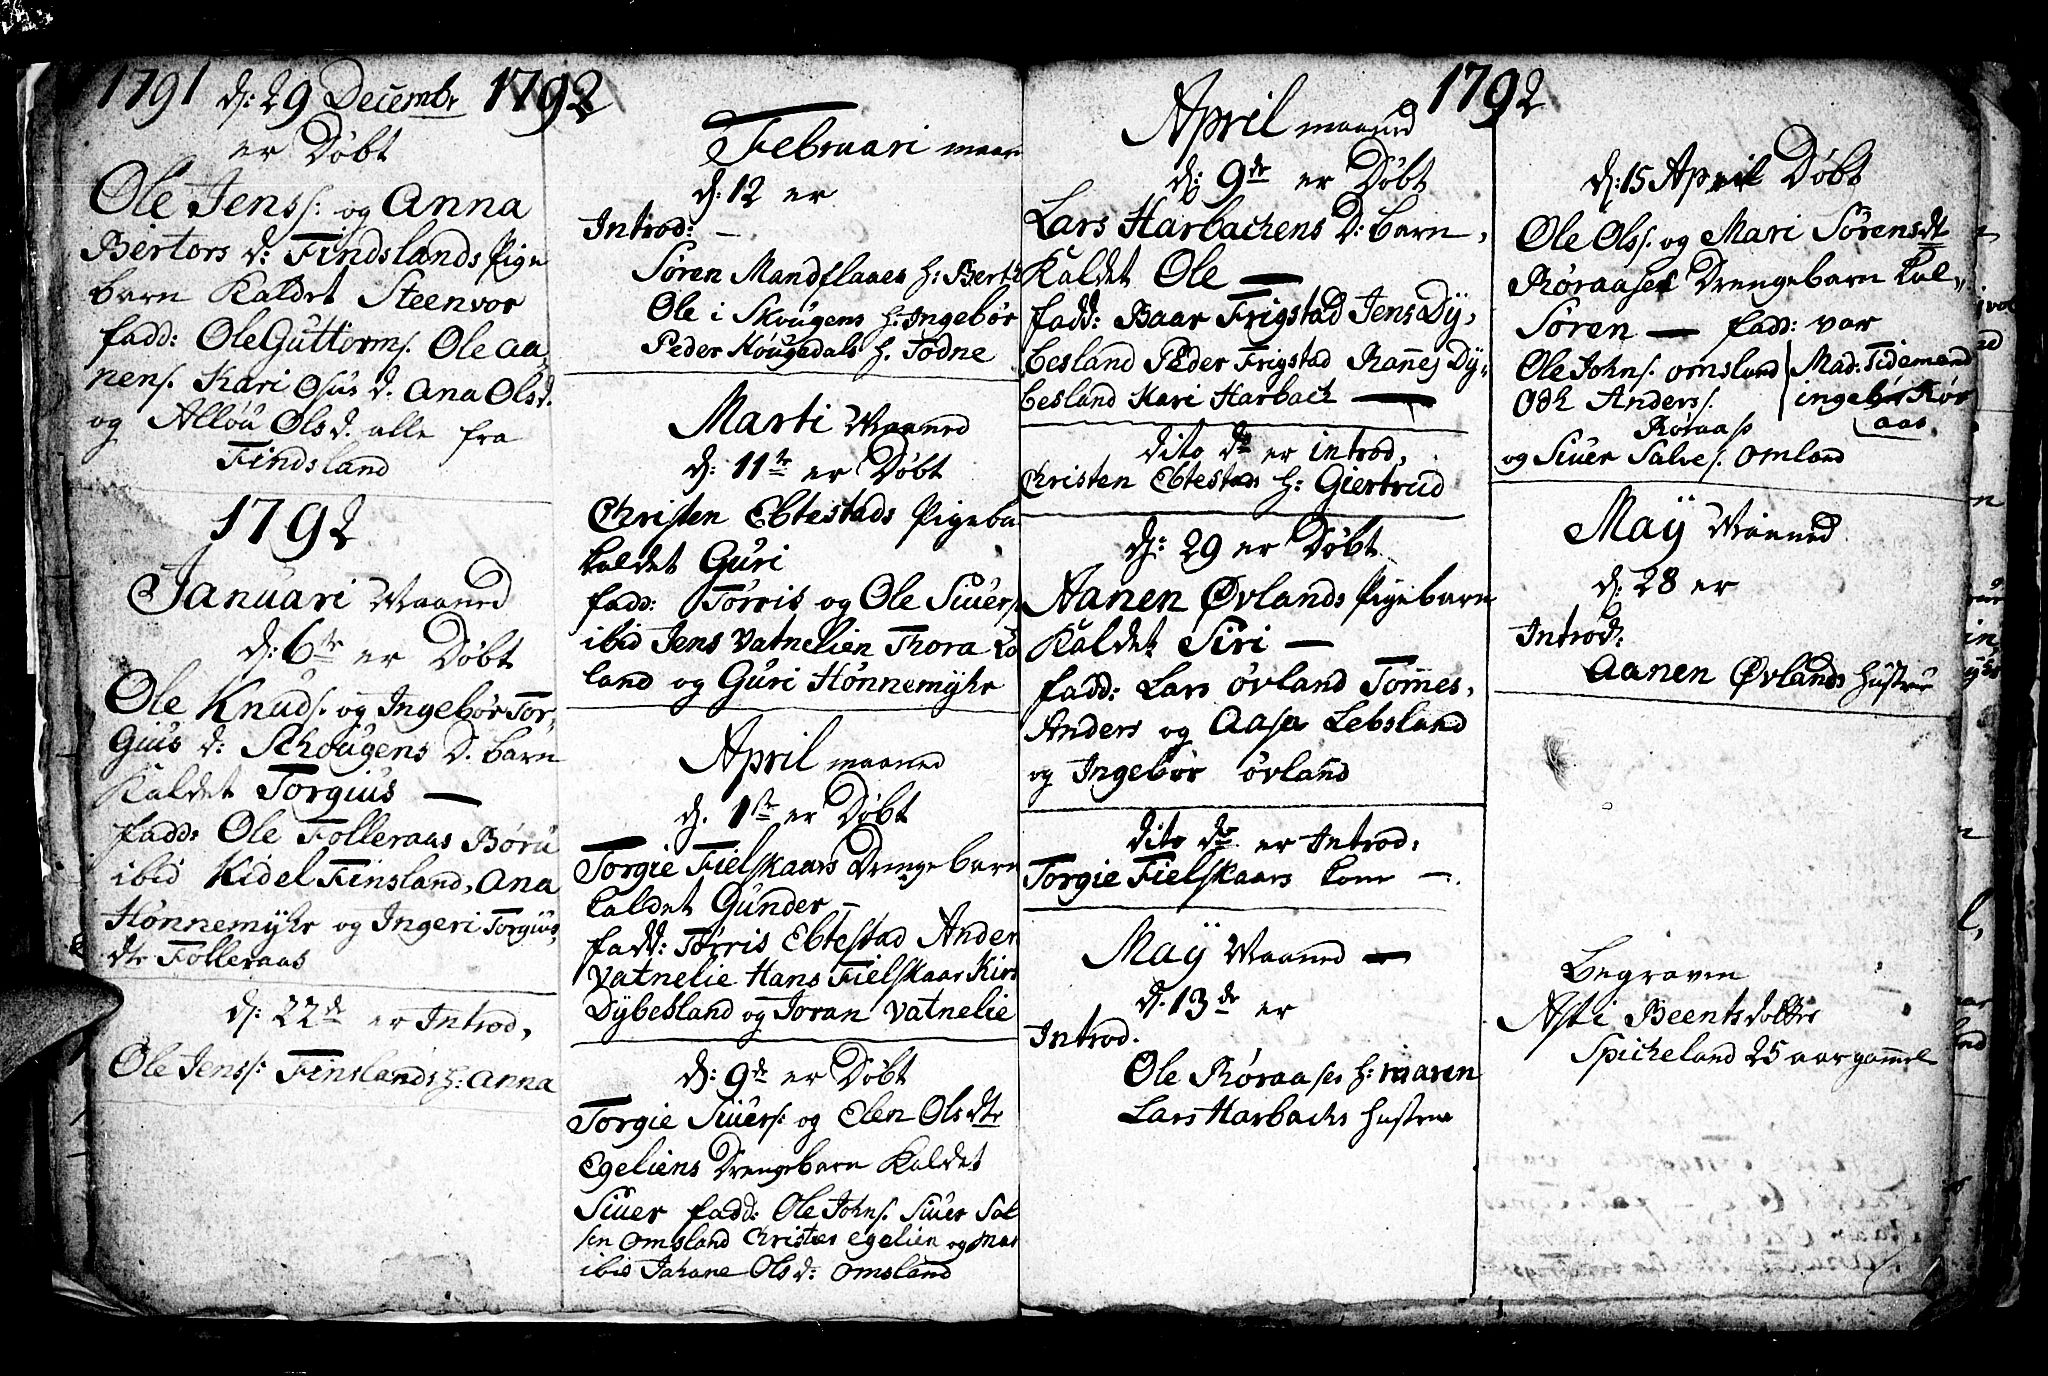 1791 d: 29 Decembr
er Døbt
Ole Jenss: og Anna
Bertors d: Findslands Pige
barn Kaldet Steenvor
fadd: Ole Guttorms. Ole Aa,
nens. Kari Osus d. Ana Olsd.
og Alloü Olsd. alle fra
Findsland
1792
Januari Maaned
d: 6te er Døbt
Ole Knuds. og Ingebør Tor,
gius d: Schougens D. barn
Kaldet Torgius —
fadd: Ole Folleraas Børü
ibid Kidel Finsland, Ana
Hønnemyhr og Ingeri Torgius,
dtr Folleraas
d: 22de er Introd,
Ole Jenss: Finslands h: Anna
1792
Februari maan
d: 12 er
Introd: —
Søren Mandflaaes h: Berte
Ole i Skougens h: Ingebør
Peder Hougedals h. Todne
Marti Maaned
d: 11te er Døbt
Christen Ebtestads Pigeba
kaldet Guri
fadd: Tørris og Ole Siuers
ibid Jens Vatnelien Thora Lo
land og Guri Hønnemyhr
April maaned
d. 1ste er Døbt
Torgie Fielskaars Drengebarn
kaldet Gunder —
fadd: Tørris Ebtestad Ander
Vatnelie Hans Fielskaar Kirs
Dybesland og Joran Vatnelie
d: 9de er Døbt
Torgie Siuers: og Elen Olsdtr
Egeliens Drengebarn Kaldet
Siuer fadd: Ole Johns. Siuer Sal
sen Omsland Christes Egelien og Mar
ibid Johane Olsd: Omsland
1792
April maaned
d: 9de er Døbt
Lars Harbachens D: barn,
Kaldet Ole —
fadd: Baar Frigstad Jens Dy,
besland Peder Frigstad Rannej Dy,
besland Kari Harbach —
dito do er introd,
Christen Ebtestads h: Giertrud
d: 29 er Døbt
Aanen Øvlands Pigebarn
Kaldet Siri —
fadd: Lars Øvland Tømes,
Anders og Aasa Lebsland
og Ingebør Øvland
dito do er Introd:
Torgie Fielskaars kone —.
Maÿ Maaned —
d. 13de er
Introd.
Ole Røraases h: maren
Lars Harbachs hustrue
d: 15 April Døbt
Ole Olss. og Mari Sørensdt
Røraases Drengebarn kal,,
Søren — fadd: var
Ole Johns. Omsland | Mad: Tidemand
Och Anders. | ingebør Rør
Røraas aas
og Siuer Salves. Omland
Maÿ Maaned
d. 28 er
Introd:
Aanen Øvlands hustrue
Begraven
Asti Beents dotter
Spicheland 25 aar gammel